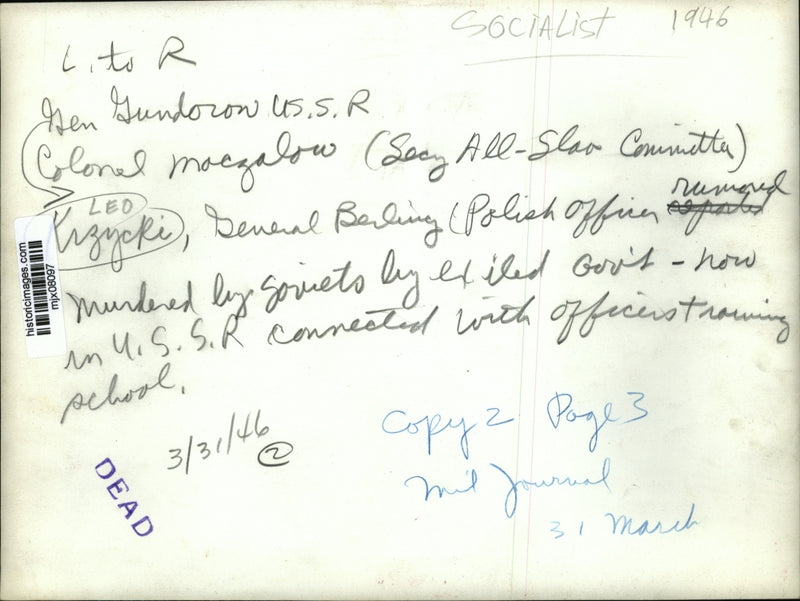 SOCIALIST 1946
L. to R
Gen Gundorow U.S.S.R
Colonel Moczalow (Secy All-Slav Committee)
LEO rumored
Krzycki, General Berling (Polish Officer reported
murdered by Soviets by exiled Gov't - now
in U.S.S.R connected with officers training
school.
3/31/46 2
Copy 2 Page 3
Mil Journal
31 March
DEAD
historicimages.com
mjx08097